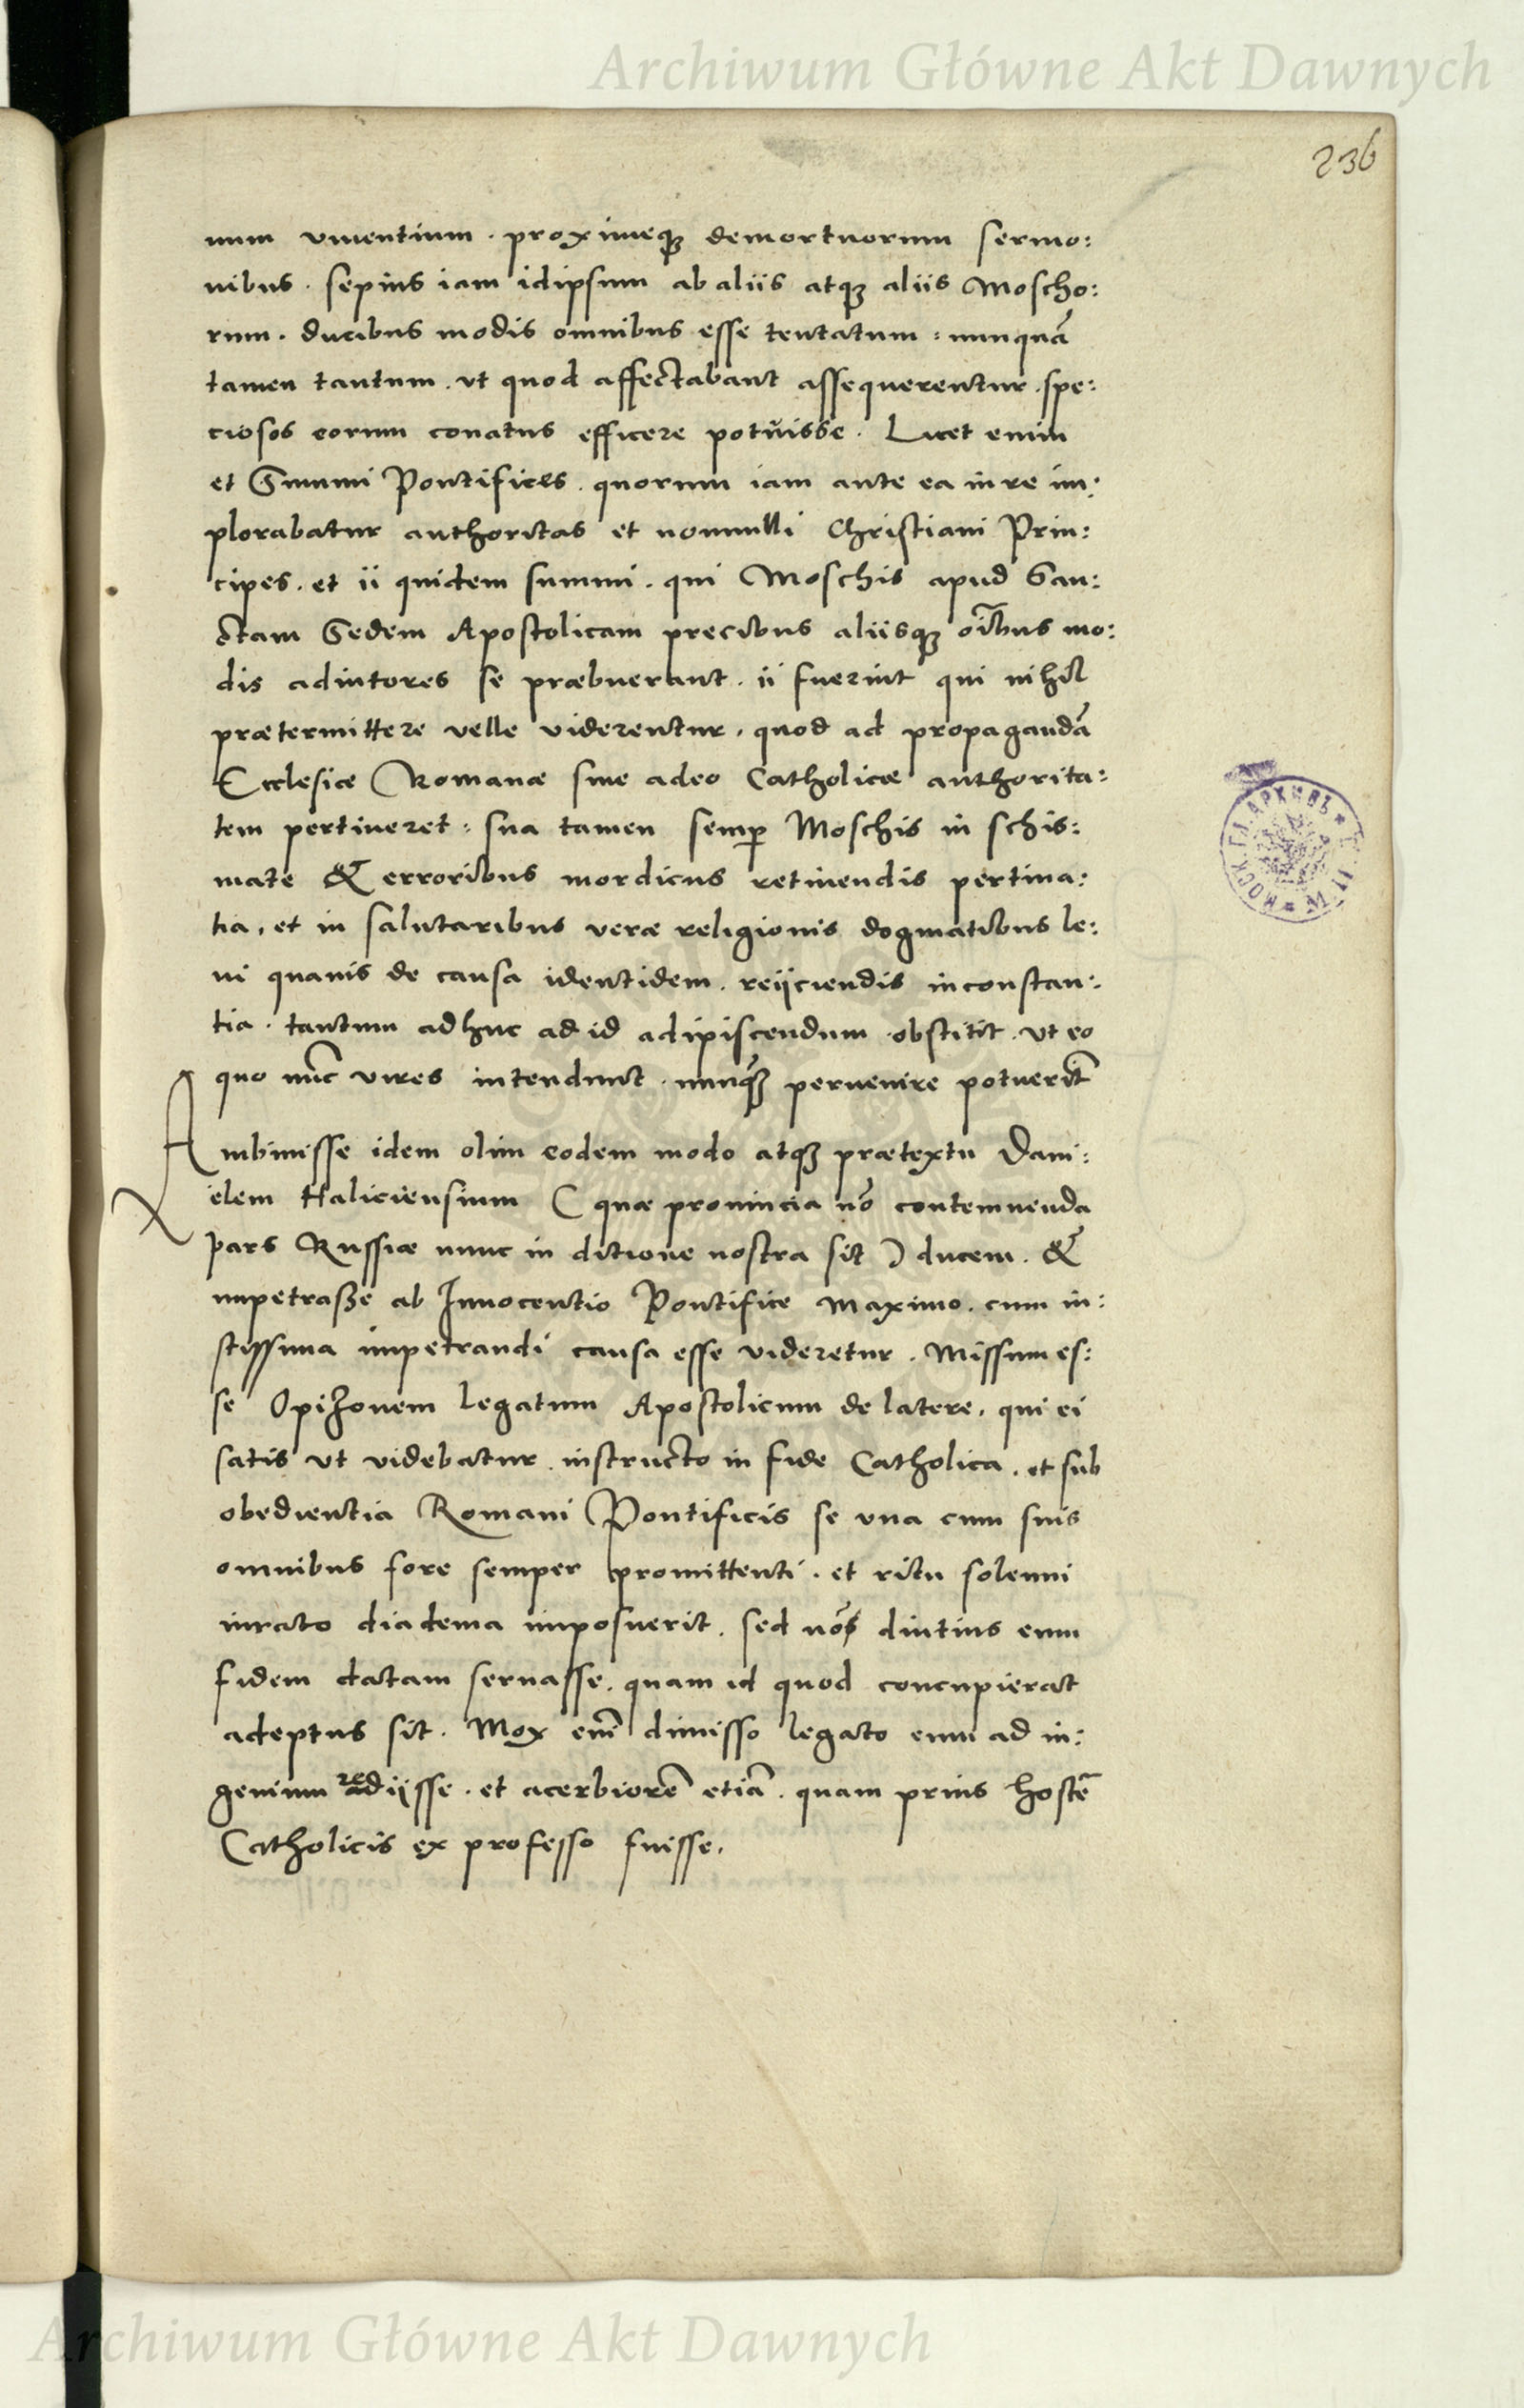 Archiwum Główne Akt Dawnych
236
num viuentium . proximeq₃ demortuorum sermo:
nibus . sepius iam idipsum ab aliis atq₃ aliis Moscho:
rum . ducibus modis omnibus esse tentatum : nunquã
tamen tantum . vt quod affectabant assequerentur . spe:
ciosos eorum conatus efficere potuisse . Licet enim
et Summi Pontifices . quorum iam ante ea in re im:
plorabatur authoritas et nonnulli Christiani Prin:
cipes . et ii quidem summi . qui Moschis apud San:
ctam Sedem Apostolicam precibus aliisq₃ oĩbus mo:
dis adiutores se præbuerant . ii fuerint qui nihil
prætermittere velle viderentur . quod ad propagandã
Ecclesiæ Romanæ siue adeo Catholicæ authorita:
tem pertineret : sua tamen semp̱ Moschis in schis:
mate & erroribus mordicus retinendis pertina:
tia . et in salutaribus veræ religionis dogmatibus le:
ui quauis de causa identidem . reijciendis inconstan:
tia . tantum adhuc ad id adipiscendum . obstitit . vt eo
quo nũc vires intendunt . nunq₃ peruenire potuerĩt
Ambiuisse idem olim eodem modo atq₃ prætextu Dani:
elem Haliciensium ( quæ prouincia nõ contemnenda
pars Russiæ nunc in ditione nostra sit ) ducem . &
impetraße ab Innocentio Pontifice Maximo . cum iu:
stissima impetrandi causa esse videretur . Missum es:
se Opizonem legatum Apostolicum de latere . qui ei
satis vt videbatur . instructo in fide Catholica . et sub
obedientia Romani Pontificis se vna cum suis
omnibus fore semper promittenti . et ritu solenni
iurato diadema imposuerit . sed nõ diutius eum
fidem datam seruasse . quam id quod concupierat
adeptus sit . Mox em̃ dimisso legato eum ad in:
genium redijsse . et acerbiorẽ etiã . quam prius hostẽ
Catholicis ex professo fuisse .
МОСК. ГЛ. АРХИВЪ
Archiwum Główne Akt Dawnych